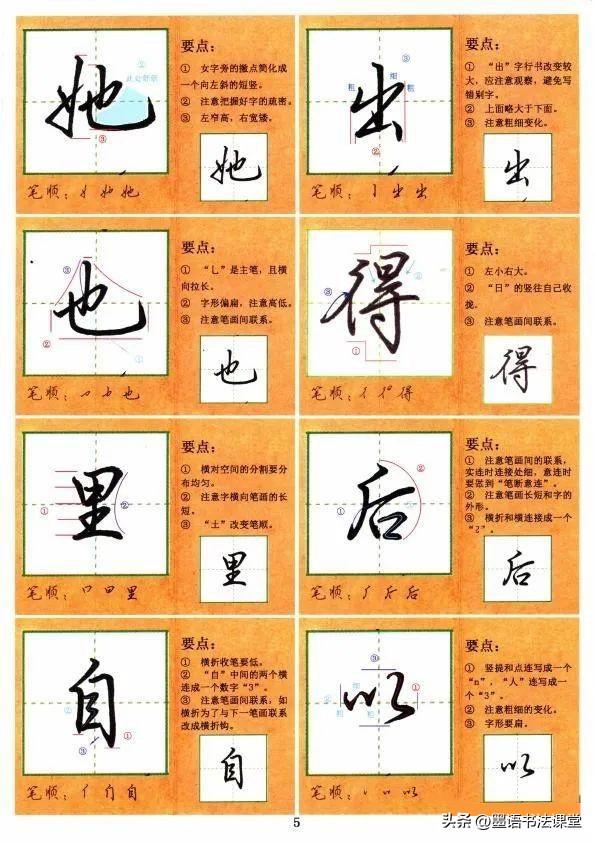 她
此处舒朗
①
③
要点：
① 女字旁的撇点简化成
一个向左斜的短竖。
② 注意把握好字的疏密。
③ 左窄高，右宽矮。
她
笔顺：
出
③
粗 细 粗
②
要点：
① “出”字行书改变较
大，应注意观察，避免写
错别字。
② 上面略大于下面。
③ 注意粗细变化。
出
笔顺：
也
③
②
①
要点：
① “乚”是主笔，且横
向拉长。
② 字形偏扁，注意高低。
③ 注意笔画间联系。
也
笔顺：
得
③
②
①
要点：
① 左小右大。
② “日”的竖往自己收
拢。
③ 注意笔画间联系。
得
笔顺：
里
①
②
要点：
① 横对空间的分割要分
布均匀。
② 注意字横向笔画的长
短。
③ “土”改变笔顺。
里
笔顺：
后
①
②
③
要点：
① 注意笔画间的联系，
实连时连接处细，意连时
要做到“笔断意连”。
② 注意笔画长短和字的
外形。
③ 横折和横连接成一个
“2”。
后
笔顺：
自
②
①
③
要点：
① 横折收笔要低。
② “自”中间的两个横
连成一个数字“3”。
③ 注意笔画间联系，如
横折为了与下一笔画联系
改成横折钩。
自
笔顺：
以
③
细
②
粗 粗
①
要点：
① 竖提和点连写成一个
“n”，“人”连写成一
个“3”。
② 注意粗细的变化。
③ 字形要扁。
以
笔顺：
5
头条 @墨语书法课堂